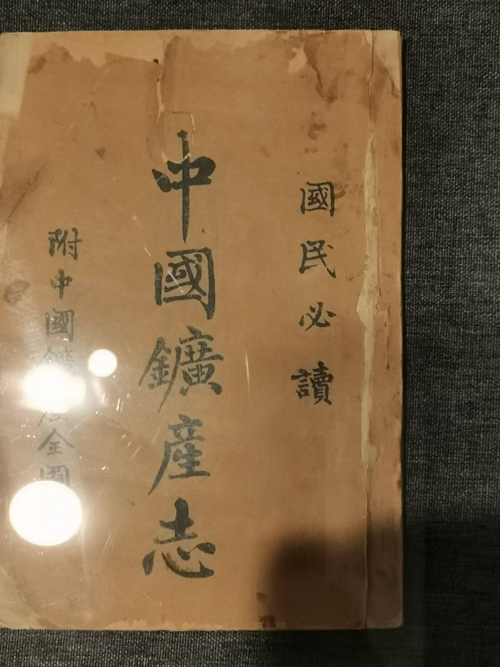 國民必讀
中國鑛産志
附中國鑛產全圖